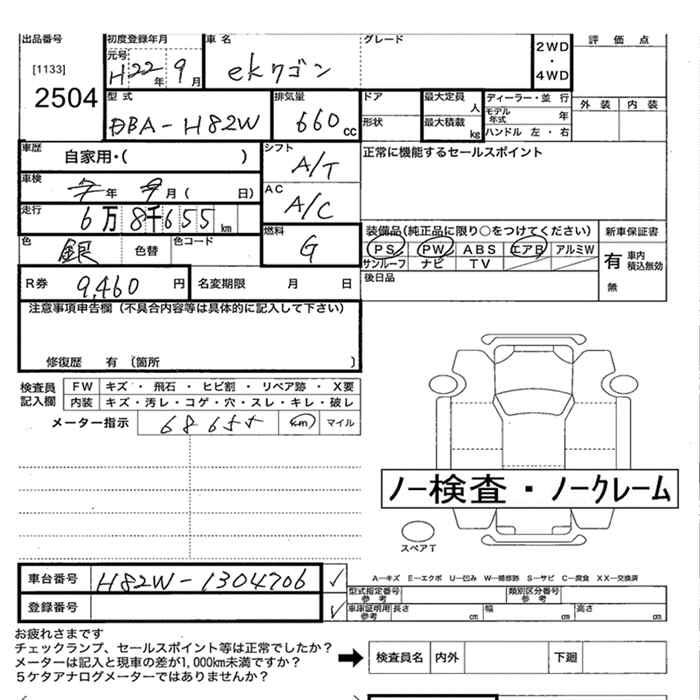 出品番号 初度登録年月 車名 グレード 評価点
[1133] 元号 H22年 9月 ekワゴン 2WD・4WD
2504
型式 排気量 ドア 最大定員 人 ディーラー・並行 外装 内装
DBA-H82W 660cc 形状 最大積載 kg モデル年式 年
ハンドル 左・右
車歴 自家用・( ) シフト A/T 正常に機能するセールスポイント
車検 年 月( 日) AC A/C
走行 6万8千655km 装備品(純正品に限り○をつけてください) 新車保証書
色 銀 色替 色コード 燃料 G PS PW ABS エアB アルミW 有 車内積込無効
サンルーフ ナビ TV
R券 9,460円 名変期限 月 日 後日品 無
注意事項申告欄(不具合内容等は具体的に記入して下さい)
修復歴 有 〔箇所 〕
検査員記入欄 FW キズ・飛石・ヒビ割・リペア跡・X要
内装 キズ・汚レ・コゲ・穴・スレ・キレ・破レ
メーター指示 68655 km マイル
ノー検査・ノークレーム
スペアT
車台番号 H82W-1304706 A―キズ E―エクボ U―凹み W―補修跡 S―サビ C―腐食 XX―交換済
型式指定番号 参考 類別区分番号 参考
登録番号 車庫証明用参考 長さ cm 幅 cm 高さ cm
お疲れさまです
チェックランプ、セールスポイント等は正常でしたか?
メーターは記入と現車の差が1,000km未満ですか? 検査員名 内外 下廻
5ケタアナログメーターではありませんか?